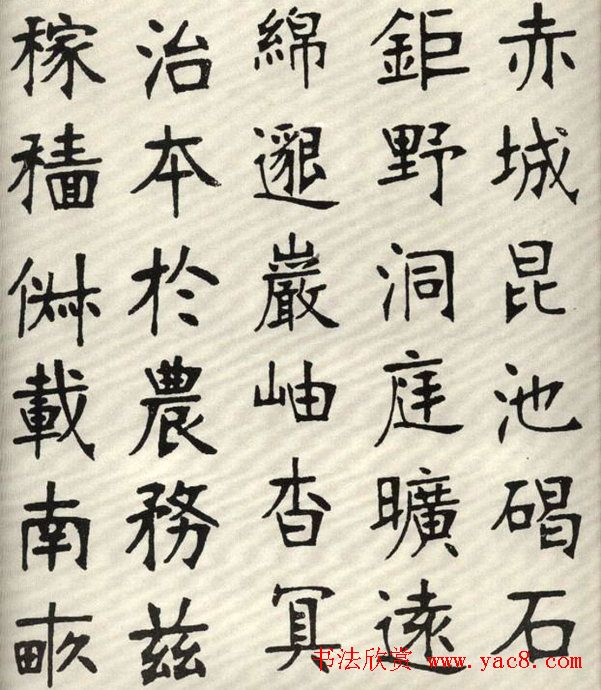 赤城昆池碣石
鉅野洞庭曠遠
綿邈巖岫杳冥
治本於農務茲
稼穡俶載南畝
书法欣赏 www.yac8.com